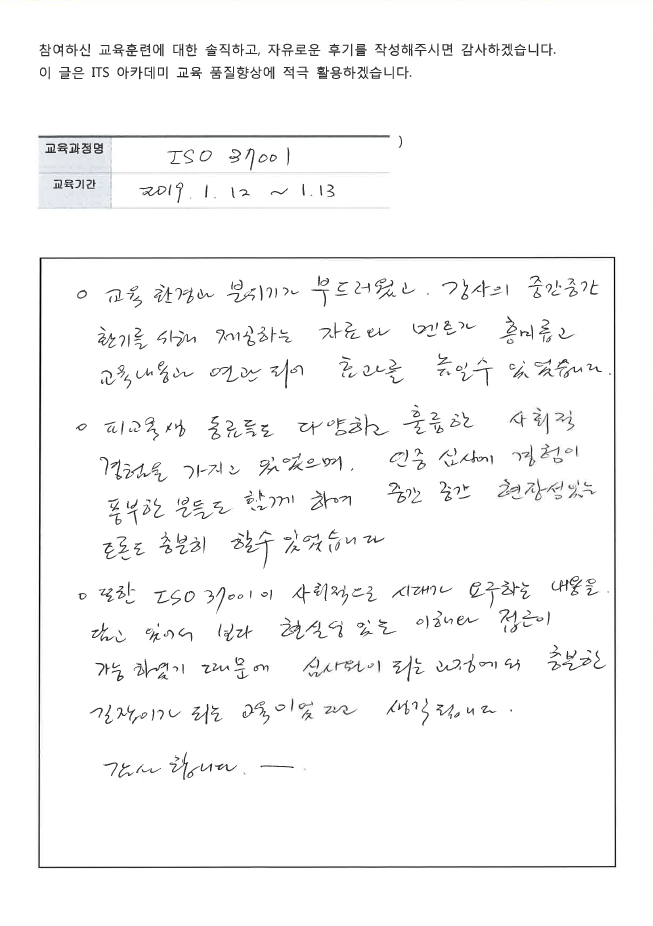 참여하신 교육훈련에 대한 솔직하고, 자유로운 후기를 작성해주시면 감사하겠습니다.
이 글은 ITS 아카데미 교육 품질향상에 적극 활용하겠습니다.
)
교육과정명 ISO 37001
교육기간 2019. 1. 12 ~ 1.13
o 교육 환경과 분위기가 부드러웠고. 강사의 중간중간
환기를 위해 제공하는 자료와 멘트가 흥미롭고
교육내용과 연관 되어 효과를 높일수 있었습니다.
o 피교육생 동료들도 다양하고 훌륭한 사회적
경험을 가지고 있었으며. 인증 심사에 경험이
풍부한 분들도 함께 하여 중간 중간 현장성있는
토론도 충분히 할수 있었습니다
o 또한 ISO 37001이 사회적으로 시대가 요구하는 내용을.
담고 있어서 보다 현실성 있는 이해와 접근이
가능 하였기 때문에 심사원이 되는 과정에의 충분한
길잡이가 되는 교육이었다고 생각됩니다.
감사 합니다. ㅡ.